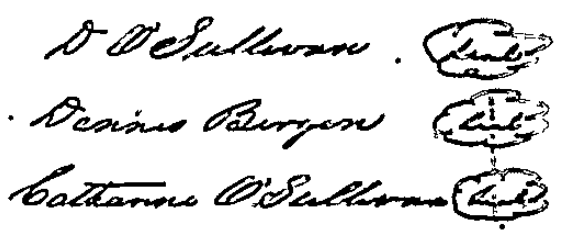 D O'Sullivan. Seal
Dennis Bergen Seal
Catharine O'Sullivan Seal